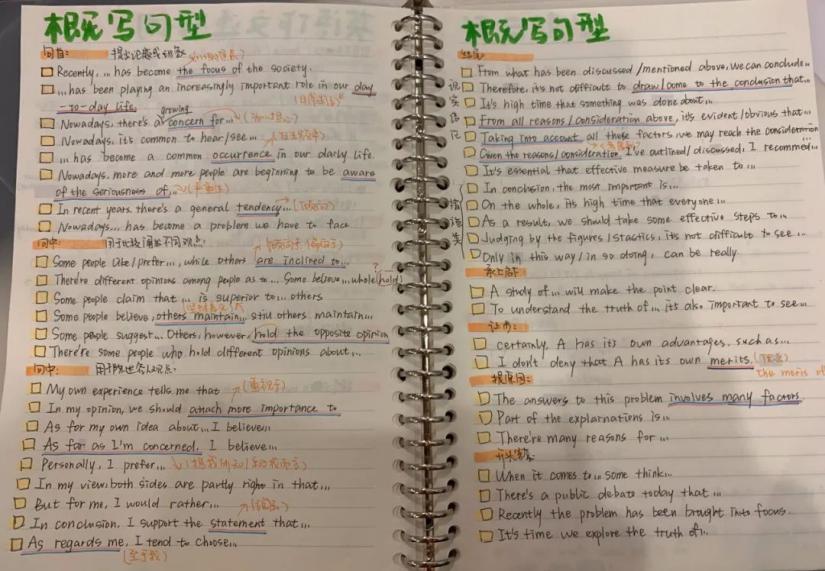 概写句型
句首： 提出论题或现象
□ Recently, ... has become the focus of the society.
□ ... has been playing an increasingly important role in our day
-to-day life.
growing
□ Nowadays, there's a concern for...
□ Nowadays, it's common to hear/see...
□ ... has become a common occurrence in our daily life.
□ Nowadays, more and more people are beginning to be aware
of the seriousness of...
□ In recent years, there's a general tendency...
□ Nowadays... has become a problem we have to face
句中： 用于比较阐述不同观点：
□ Some people like/prefer..., while others are inclined to...
□ There're different opinions among people as to... Some believe... whole (hold)
□ Some people claim that ... is superior to... others
□ Some people believe, others maintain, still others maintain...
□ Some people suggest... Others, however, hold the opposite opinion
□ There're some people who hold different opinions about...
句中：
□ My own experience tells me that
□ In my opinion, we should attach more importance to
□ As for my own idea about... I believe...
□ As far as I'm concerned, I believe...
□ Personally, I prefer...
□ In my view, both sides are partly right in that...
□ But for me, I would rather...
□ In conclusion, I support the statement that...
□ As regards me, I tend to choose...
(至于我)
概写句型
□ From what has been discussed /mentioned above, we can conclude...
□ Therefore, it's not difficult to draw/come to the conclusion that...
□ It's high time that something was done about...
□ From all reasons / consideration above, it's evident /obvious that...
□ Taking into account all those factors, we may reach the consideration
□ Given the reasons/consideration, I've outlined/discussed, I recommed...
□ It's essential that effective measure be taken to ...
□ In conclusion, the most important is...
□ On the whole, it's high time that everyone...
□ As a result, we should take some effective steps to...
□ Judging by the figures /stastics, it's not difficult to see...
□ Only in this way/in so doing, can be really
□ A study of... will make the point clear.
□ To understand the truth of..., it's also important to see...
□ certanly, A has its own advantages, such as...
□ I don't deny that A has its own merits.
the merits of
提原因：
□ The answers to this problem involves many factors
□ Part of the explarnations is...
□ There're many reasons for ...
□ When it comes to... some think...
□ There's a public debate today that ...
□ Recently the problem has been brought into focus.
□ It's time we explore the truth of...